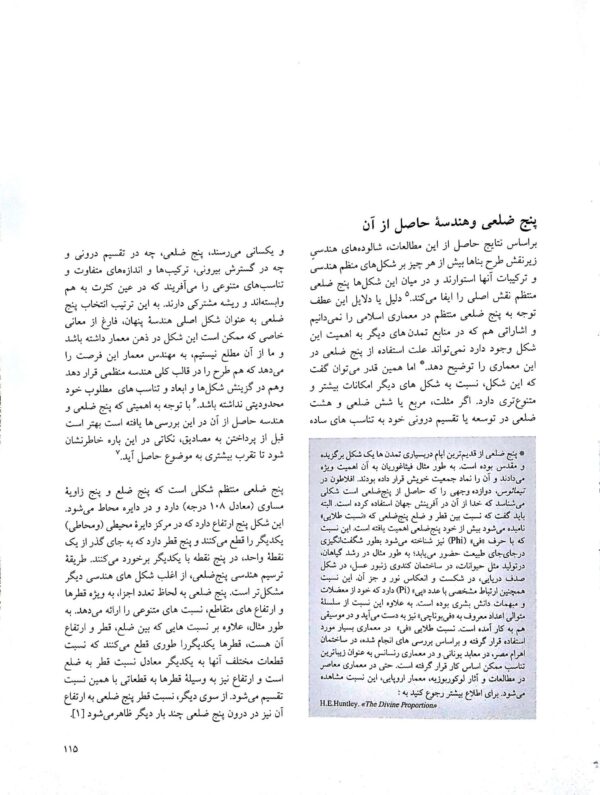 پنج ضلعی و هندسهٔ حاصل از آن
براساس نتایج حاصل از این مطالعات، شالوده‌های هندسیِ
زیرنقش طرح بناها بیش از هر چیز بر شکل‌های منظم هندسی
و ترکیبات آنها استوارند و در میان این شکل‌ها پنج ضلعی
منتظم نقش اصلی را ایفا می‌کند.⁵ دلیل یا دلایل این عطف
توجه به پنج ضلعی منتظم در معماری اسلامی را نمی‌دانیم
و اشاراتی هم که در منابع تمدن های دیگر به اهمیت این
شکل وجود دارد نمی‌تواند علت استفاده از پنج ضلعی در
این معماری را توضیح دهد.* اما همین قدر می‌توان گفت
که این شکل، نسبت به شکل های دیگر امکانات بیشتر و
متنوع‌تری دارد. اگر مثلث، مربع یا شش ضلعی و هشت
ضلعی در توسعه یا تقسیم درونی خود به تناسب های ساده
* پنج ضلعی از قدیم‌ترین ایام دربسیاری تمدن ها یک شکل برگزیده
و مقدس بوده است. به طور مثال فیثاغوریان به آن اهمیت ویژه
می‌دادند و آن را نماد جمعیت خویش قرار داده بودند. افلاطون در
تیمائوس، دوازده وجهی را که حاصل از پنج‌ضلعی است شکلی
می‌شناسد که خدا از آن در آفرینش جهان استفاده کرده است. البته
باید گفت که نسبت بین قطر و ضلع پنج‌ضلعی که «نسبت طلایی»
نامیده می‌شود بیش از خود پنج‌ضلعی اهمیت یافته است. این نسبت
که با حرف «فی» (Phi) نیز شناخته می‌شود بطور شگفت‌انگیزی
درجای‌جای طبیعت حضور می‌یابد؛ به طور مثال در رشد گیاهان،
درتولید مثل حیوانات، در ساختمان کندوی زنبور عسل، در شکل
صدف دریایی، در شکست و انعکاس نور و جز آن. این نسبت
همچنین ارتباط مشخصی با عدد «پی» (Pi) دارد که خود از معضلات
و مبهمات دانش بشری بوده است. به علاوه این نسبت از سلسلهٔ
متوالی اعداد معروف به «فی‌بوناچی» نیز به دست می‌آید و در موسیقی
هم به کار آمده است. نسبت طلایی «فی» در معماری بسیار مورد
استفاده قرار گرفته و براساس بررسی های انجام شده، در ساختمان
اهرام مصر، در معابد یونانی و در معماری رنسانس به عنوان زیباترین
تناسب ممکن اساس کار قرار گرفته است. حتی در معماری معاصر
در مطالعات و آثار لوکوربوزیه، معمار اروپایی، این نسبت مشاهده
می‌شود. برای اطلاع بیشتر رجوع کنید به :
H.E.Huntley. «The Divine Proportion»
و یکسانی می‌رسند، پنج ضلعی، چه در تقسیم درونی و
چه در گسترش بیرونی، ترکیب‌ها و اندازه‌های متفاوت و
تناسب‌های متنوعی را می‌آفریند که در عین کثرت به هم
وابسته‌اند و ریشه مشترکی دارند. به این ترتیب انتخاب پنج
ضلعی به عنوان شکل اصلی هندسهٔ پنهان، فارغ از معانی
خاصی که ممکن است این شکل در ذهن معمار داشته باشد
و ما از آن مطلع نیستیم، به مهندس معمار این فرصت را
می‌دهد که هم طرح را در قالب کلی هندسه منظمی قرار دهد
وهم در گزینش شکل‌ها و ابعاد و تناسب های مطلوب خود
محدودیتی نداشته باشد.⁶ با توجه به اهمیتی که پنج ضلعی و
هندسه حاصل از آن در این بررسی‌ها یافته است بهتر است
قبل از پرداختن به مصادیق، نکاتی در این باره خاطرنشان
شود تا تقرب بیشتری به موضوع حاصل آید.⁷
پنج ضلعی منتظم شکلی است که پنج ضلع و پنج زاویهٔ
مساوی (معادل ۱۰۸ درجه) دارد و در دایره محاط می‌شود.
این شکل پنج ارتفاع دارد که در مرکز دایرهٔ محیطی (ومحاطی)
یکدیگر را قطع می‌کنند و پنج قطر دارد که به جای گذر از یک
نقطهٔ واحد، در پنج نقطه با یکدیگر برخورد می‌کنند. طریقهٔ
ترسیم هندسی پنج‌ضلعی، از اغلب شکل های هندسی دیگر
مشکل‌تر است. پنج ضلعی به لحاظ تعدد اجزا، به ویژه قطرها
و ارتفاع های متقاطع، نسبت های متنوعی را ارائه می‌دهد. به
طور مثال، علاوه بر نسبت هایی که بین ضلع، قطر و ارتفاع
آن هست، قطرها یکدیگررا طوری قطع می‌کنند که نسبت
قطعات مختلف آنها به یکدیگر معادل نسبت قطر به ضلع
است و ارتفاع نیز به وسیلهٔ قطرها به قطعاتی با همین نسبت
تقسیم می‌شود. از سوی دیگر، نسبت قطر پنج ضلعی به ارتفاع
آن نیز در درون پنج ضلعی چند بار دیگر ظاهرمی‌شود [۱].
۱۱۵